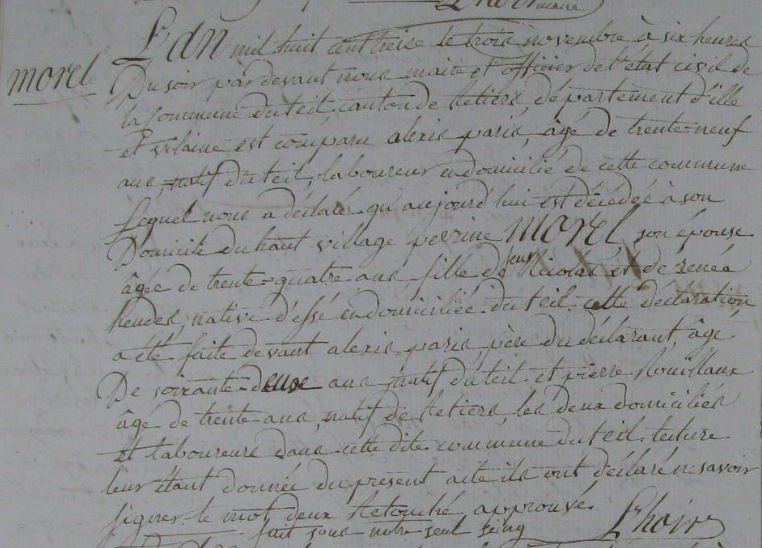 maire
morel
L'an mil huit cent treise le trois novembre à six heures
Du soir par devant nous maire et officier de l'état civil de
la commune du teil canton de Retiers, département d'ille
et vilaine est comparu alexis paris, âgé de trente-neuf
ans, natif du teil, laboureur endomicilié de cette commune
lequel nous a déclaré qu'aujourd'hui est décédée à son
Domicile du haut village perrine Morel son épouse
âgée de trente-quatre ans fille de feu Nicolas et de renée
, native d'essé endomiciliée du teil. cette déclaration
a été faite devant alexis paris, père du déclarant, âgé
De soixante-deux ans natif du teil et pierre Rouillaux
âgé de trente ans, natif de Retiers, les deux domiciliés
et laboureurs dans cette dite commune du teil. lecture
leur étant donnée du présent acte ils ont déclaré ne savoir
signer le mot deux Retouché, approuvé.
fait sous notre seul seing